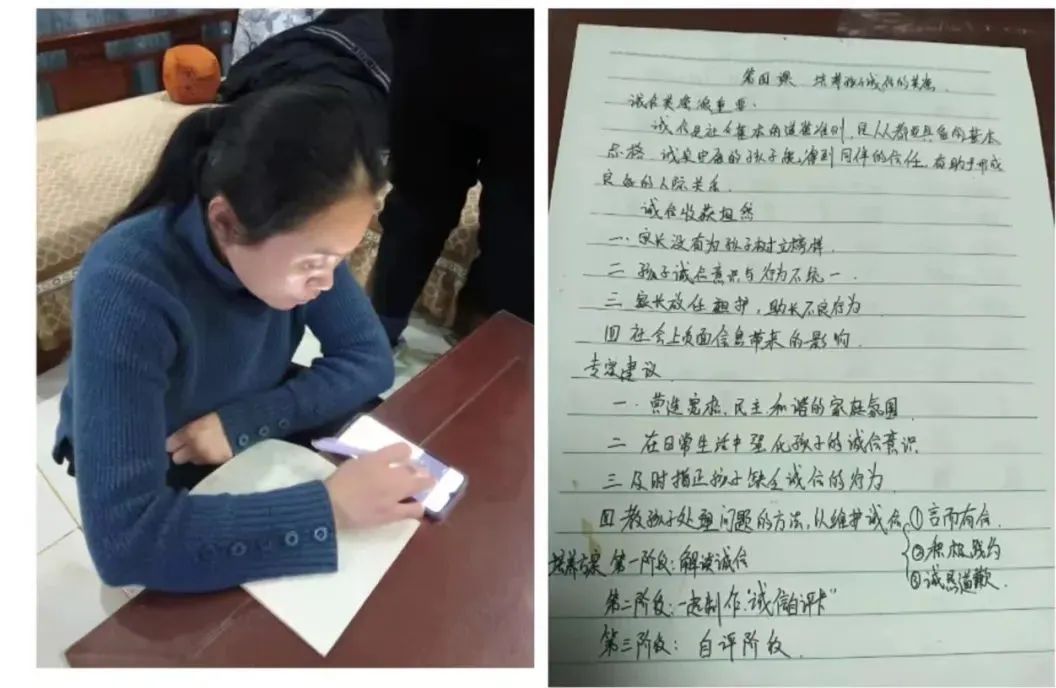 第四课 培养孩子诚信的美德
诚信美德很重要:
诚信是社会基本的道德准则,是人人都要具备的基本
品格。诚实守信的孩子能得到同伴的信任,有助于形成
良好的人际关系.
诚信收获坦然
一.家长没有为孩子树立榜样.
二 孩子诚信意识与行为不统一.
三 家长放任袒护,助长不良行为
四 社会上负面信息带来的影响.
专家建议
一.营造宽松,民主和谐的家庭氛围
二 在日常生活中强化孩子的诚信意识
三 及时指正孩子缺乏诚信的行为
四 教孩子处理问题的方法,以维护诚信 ①言而有信.
②积极践约
③诚恳道歉.
培养方案 第一阶段:解读诚信
第二阶段:一起制作"诚信自评卡"
第三阶段: 自评阶段.